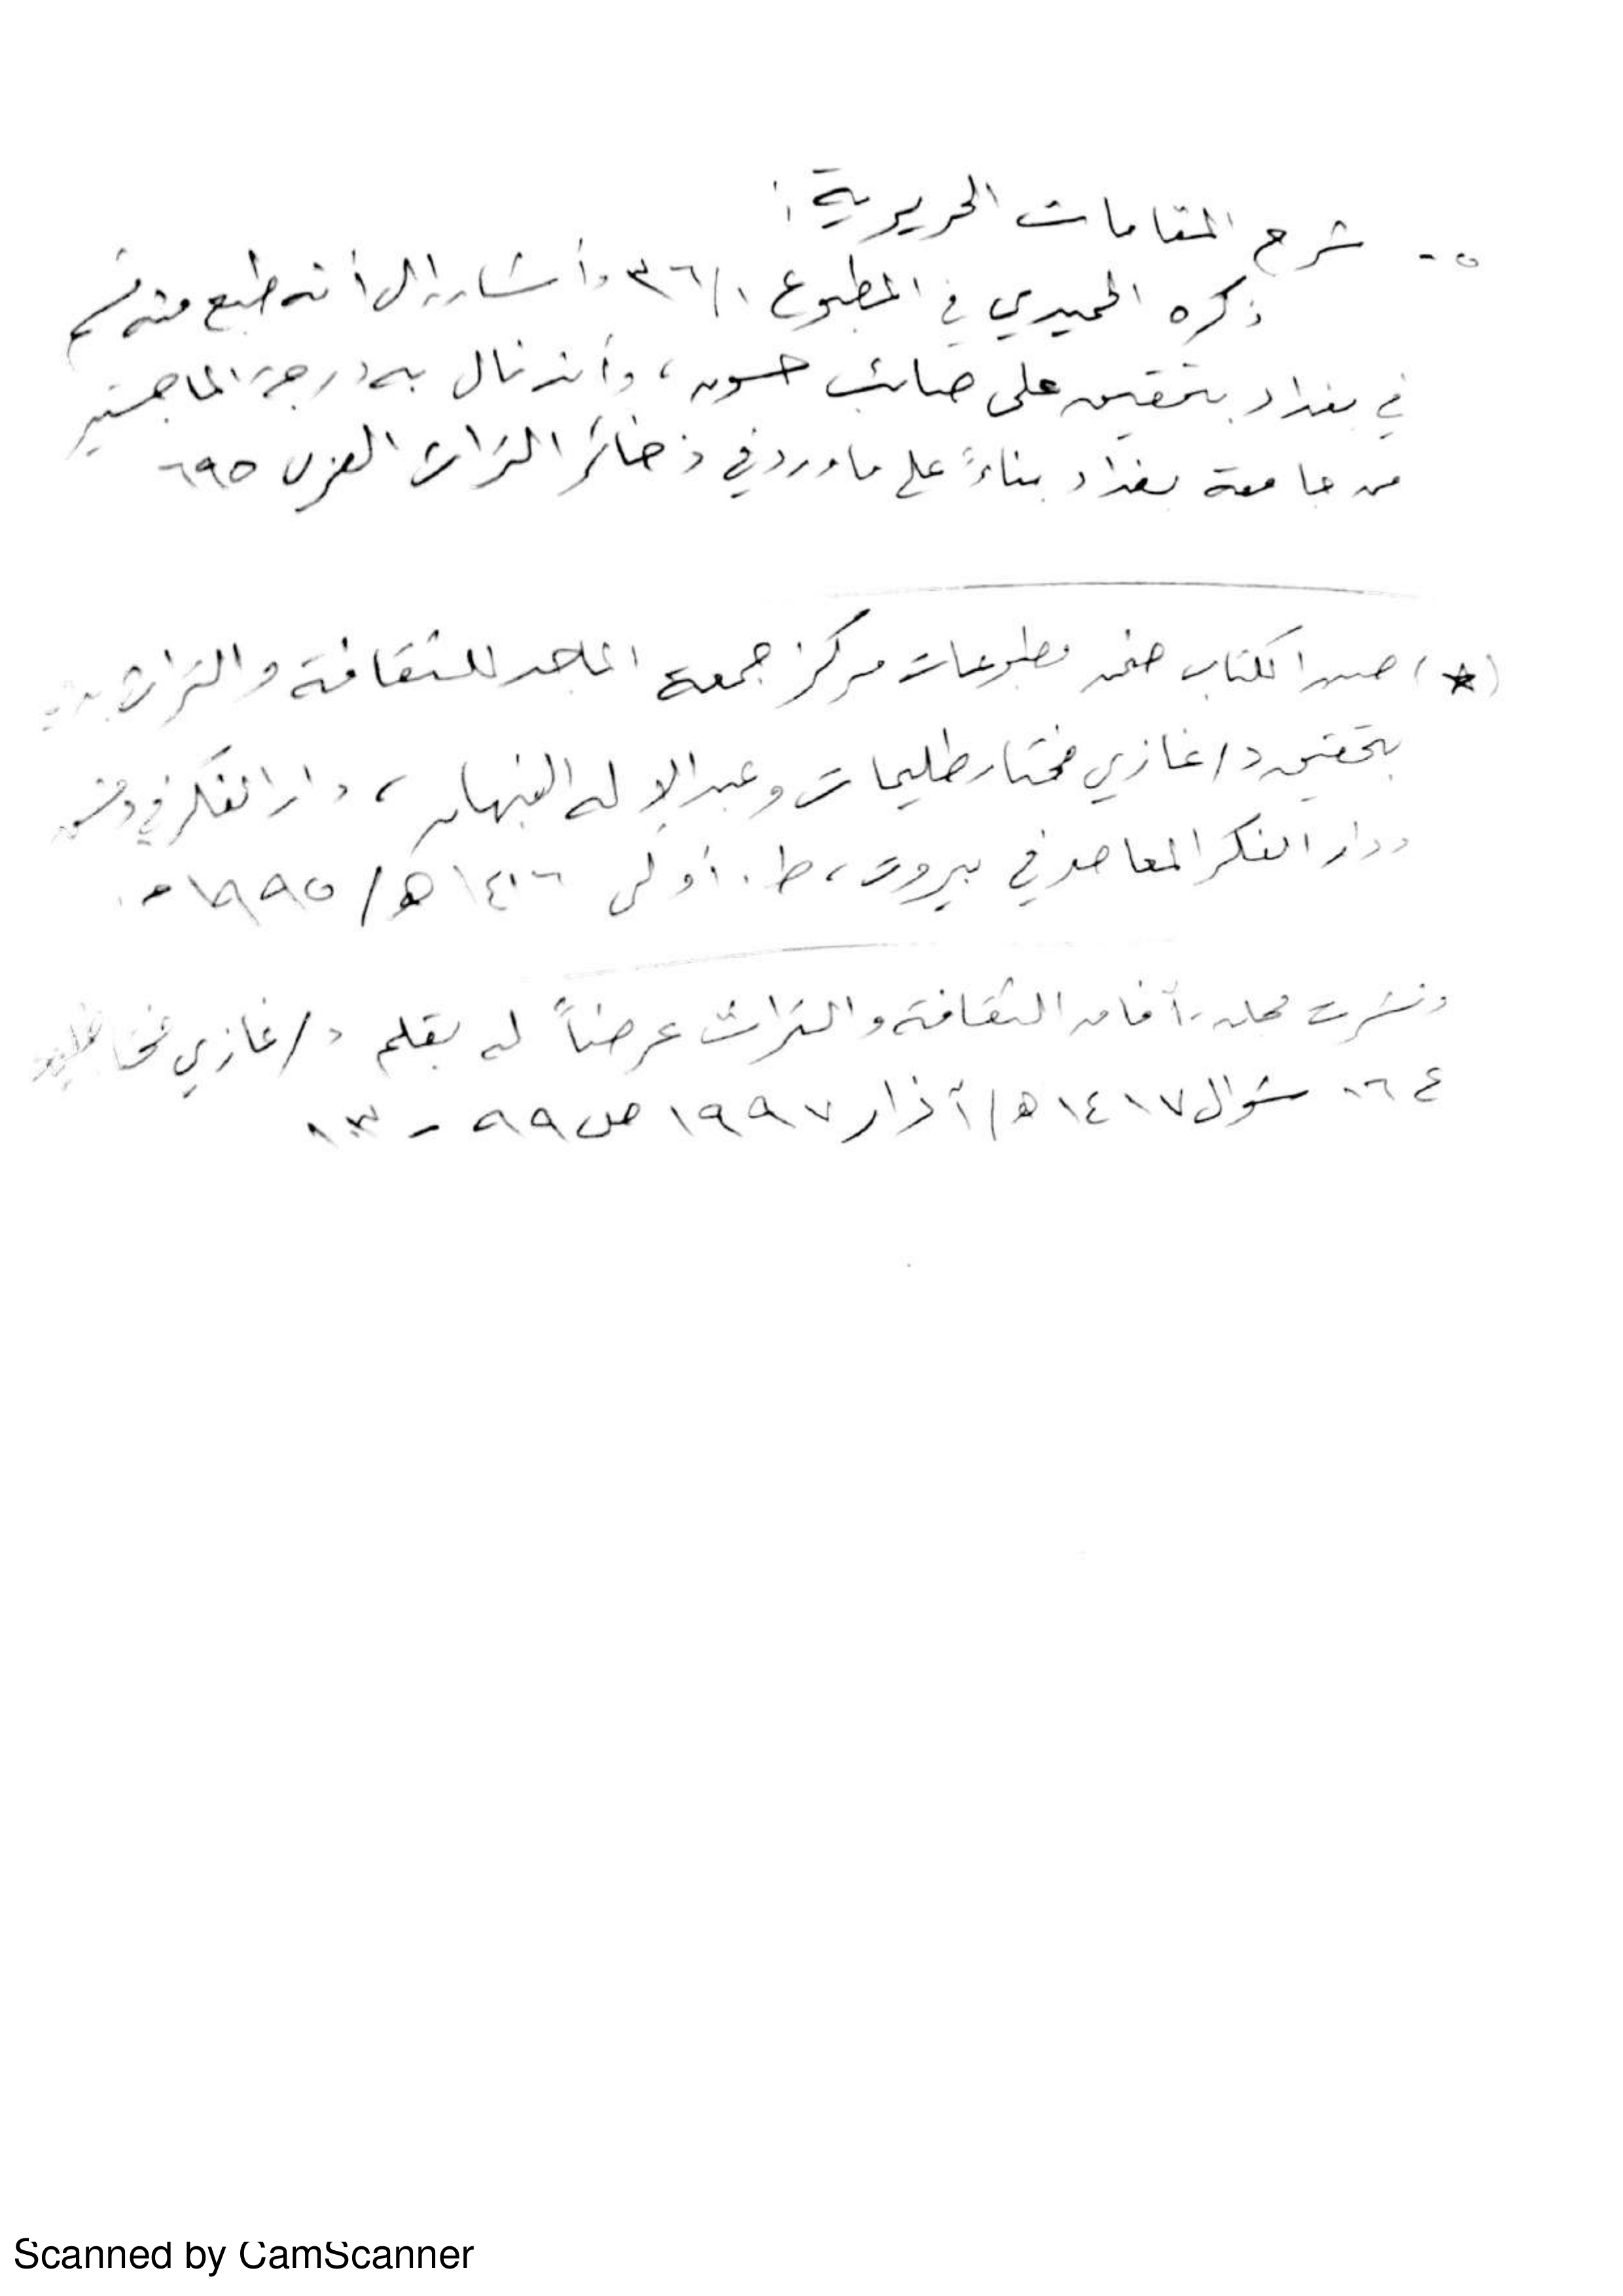 ٥- شرح المقامات الحريرية:
ذكره الحميدي في المطبوع ٣٦/١ وأشار إلى أنه طبع منه قسم
في بغداد بتحقيق علي صائب حسون، وأنه نال به درجة الماجستير
من جامعة بغداد بناءً على ما ورد في ذخائر التراث العربي ٦٩٥
(★) صدر الكتاب ضمن مطبوعات مركز جمعة الماجد للثقافة والتراث بدبي
بتحقيق د/غازي مختار طليمات وعبد الإله النبهان، دار الفكر في دمشق
ودار الفكر المعاصر في بيروت، ط. أولى ١٤١٦هـ/١٩٩٥م.
ونشرت مجلة آفاق الثقافة والتراث عرضاً له بقلم د/غازي مختار طليمات
ع ١٦ شوال ١٤١٧هـ/آذار ١٩٩٧ ص ٩٩ -
Scanned by CamScanner